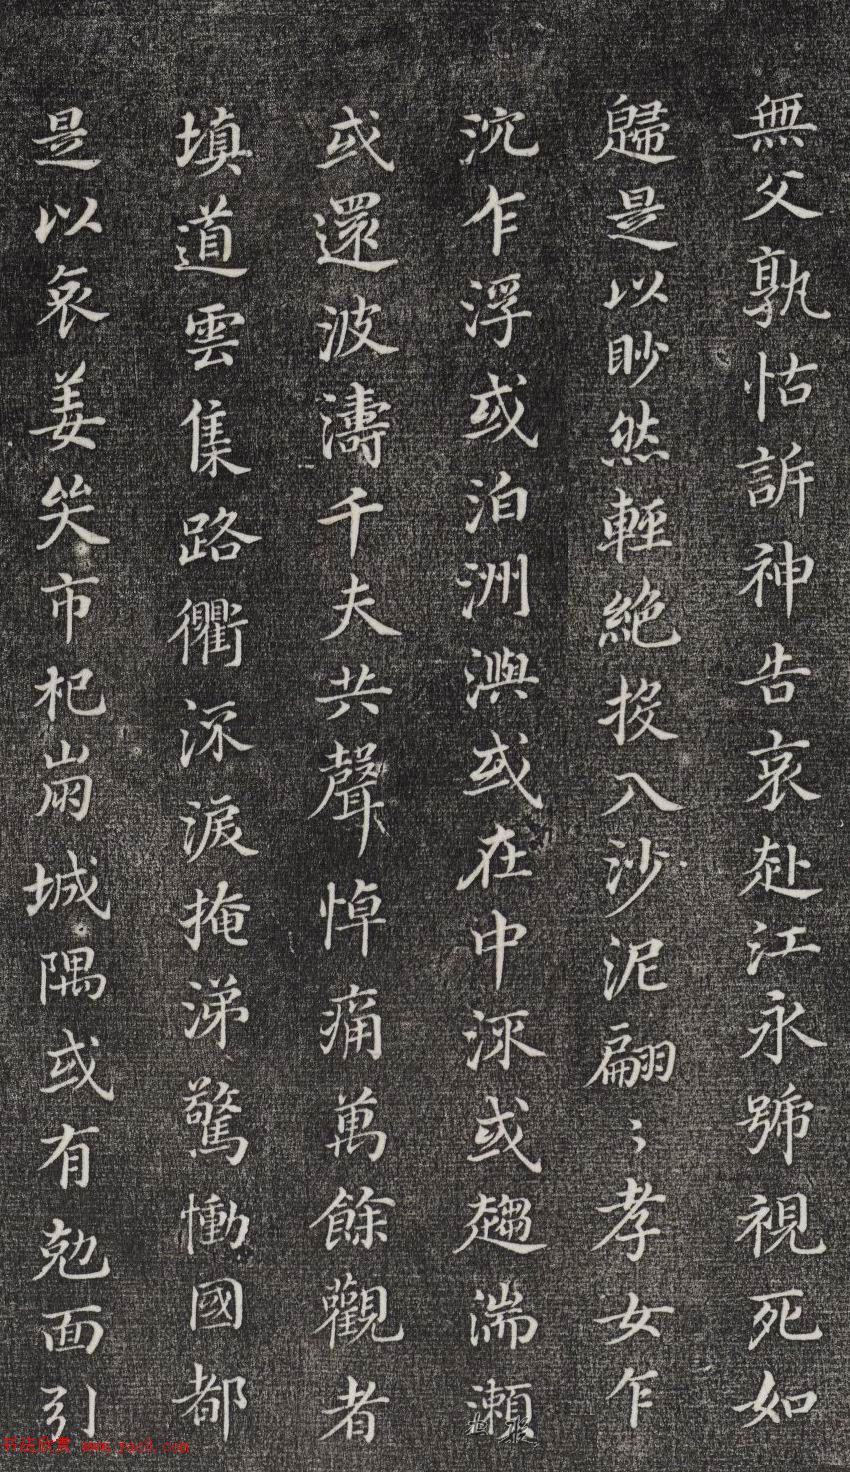 無父孰怙訴神告哀赴江永號視死如
歸是以眇然輕絶投入沙泥翩〻孝女乍
沉乍浮或泊洲澳或在中流或趨湍瀨
或還波濤千夫共聲悼痛萬餘觀者
填道雲集路衢流淚掩涕驚慟國都
是以哀姜哭市杞崩城隅或有勊面引
www.yac8.com